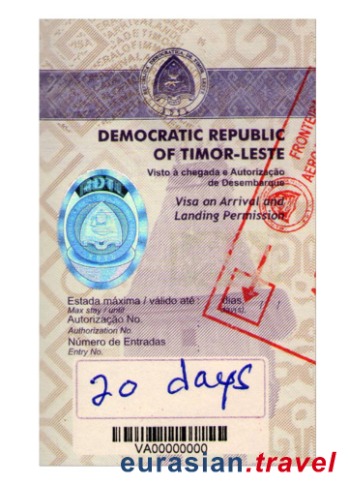 DEMOCRATIC REPUBLIC
OF TIMOR-LESTE
Visto à chegada e Autorização
de Desembarque
Visa on Arrival and
Landing Permission
FRONTEIR
AERO
Estada máxima / válido até : dias
Max stay / until day(s)
Autorização No.
Authorization No.
Número de Entradas
Entry No.
20 days
VA00000000
eurasian.travel